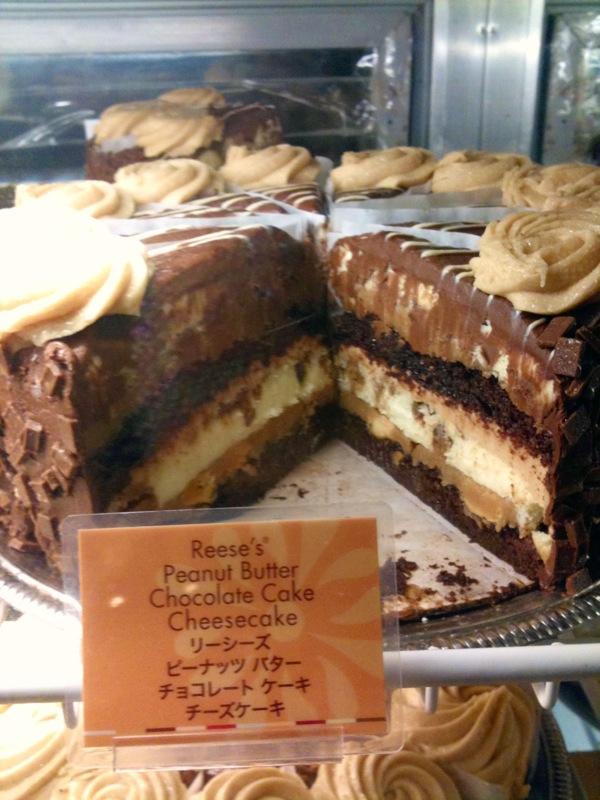 Reese's®
Peanut Butter
Chocolate Cake
Cheesecake
リーシーズ
ピーナッツ バター
チョコレート ケーキ
チーズケーキ